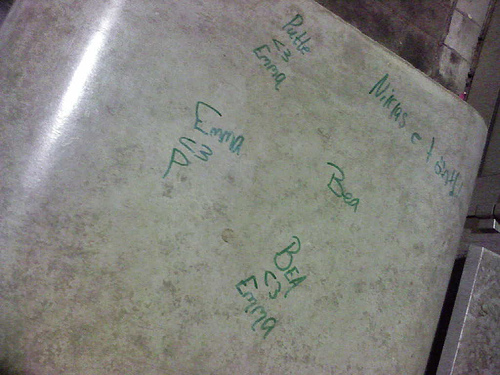 Patte
<3
Emma
Niklas e t
Emma
<3
P
Bea
BEA
<3
Emma